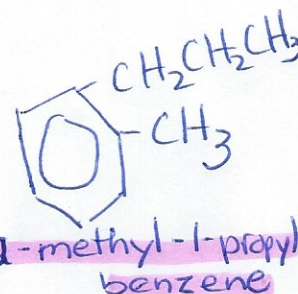 CH₂CH₂CH₃
CH₃
-methyl-1-propyl
benzene